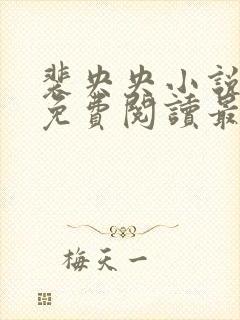 裴央央小說
免費閱讀最
梅天一